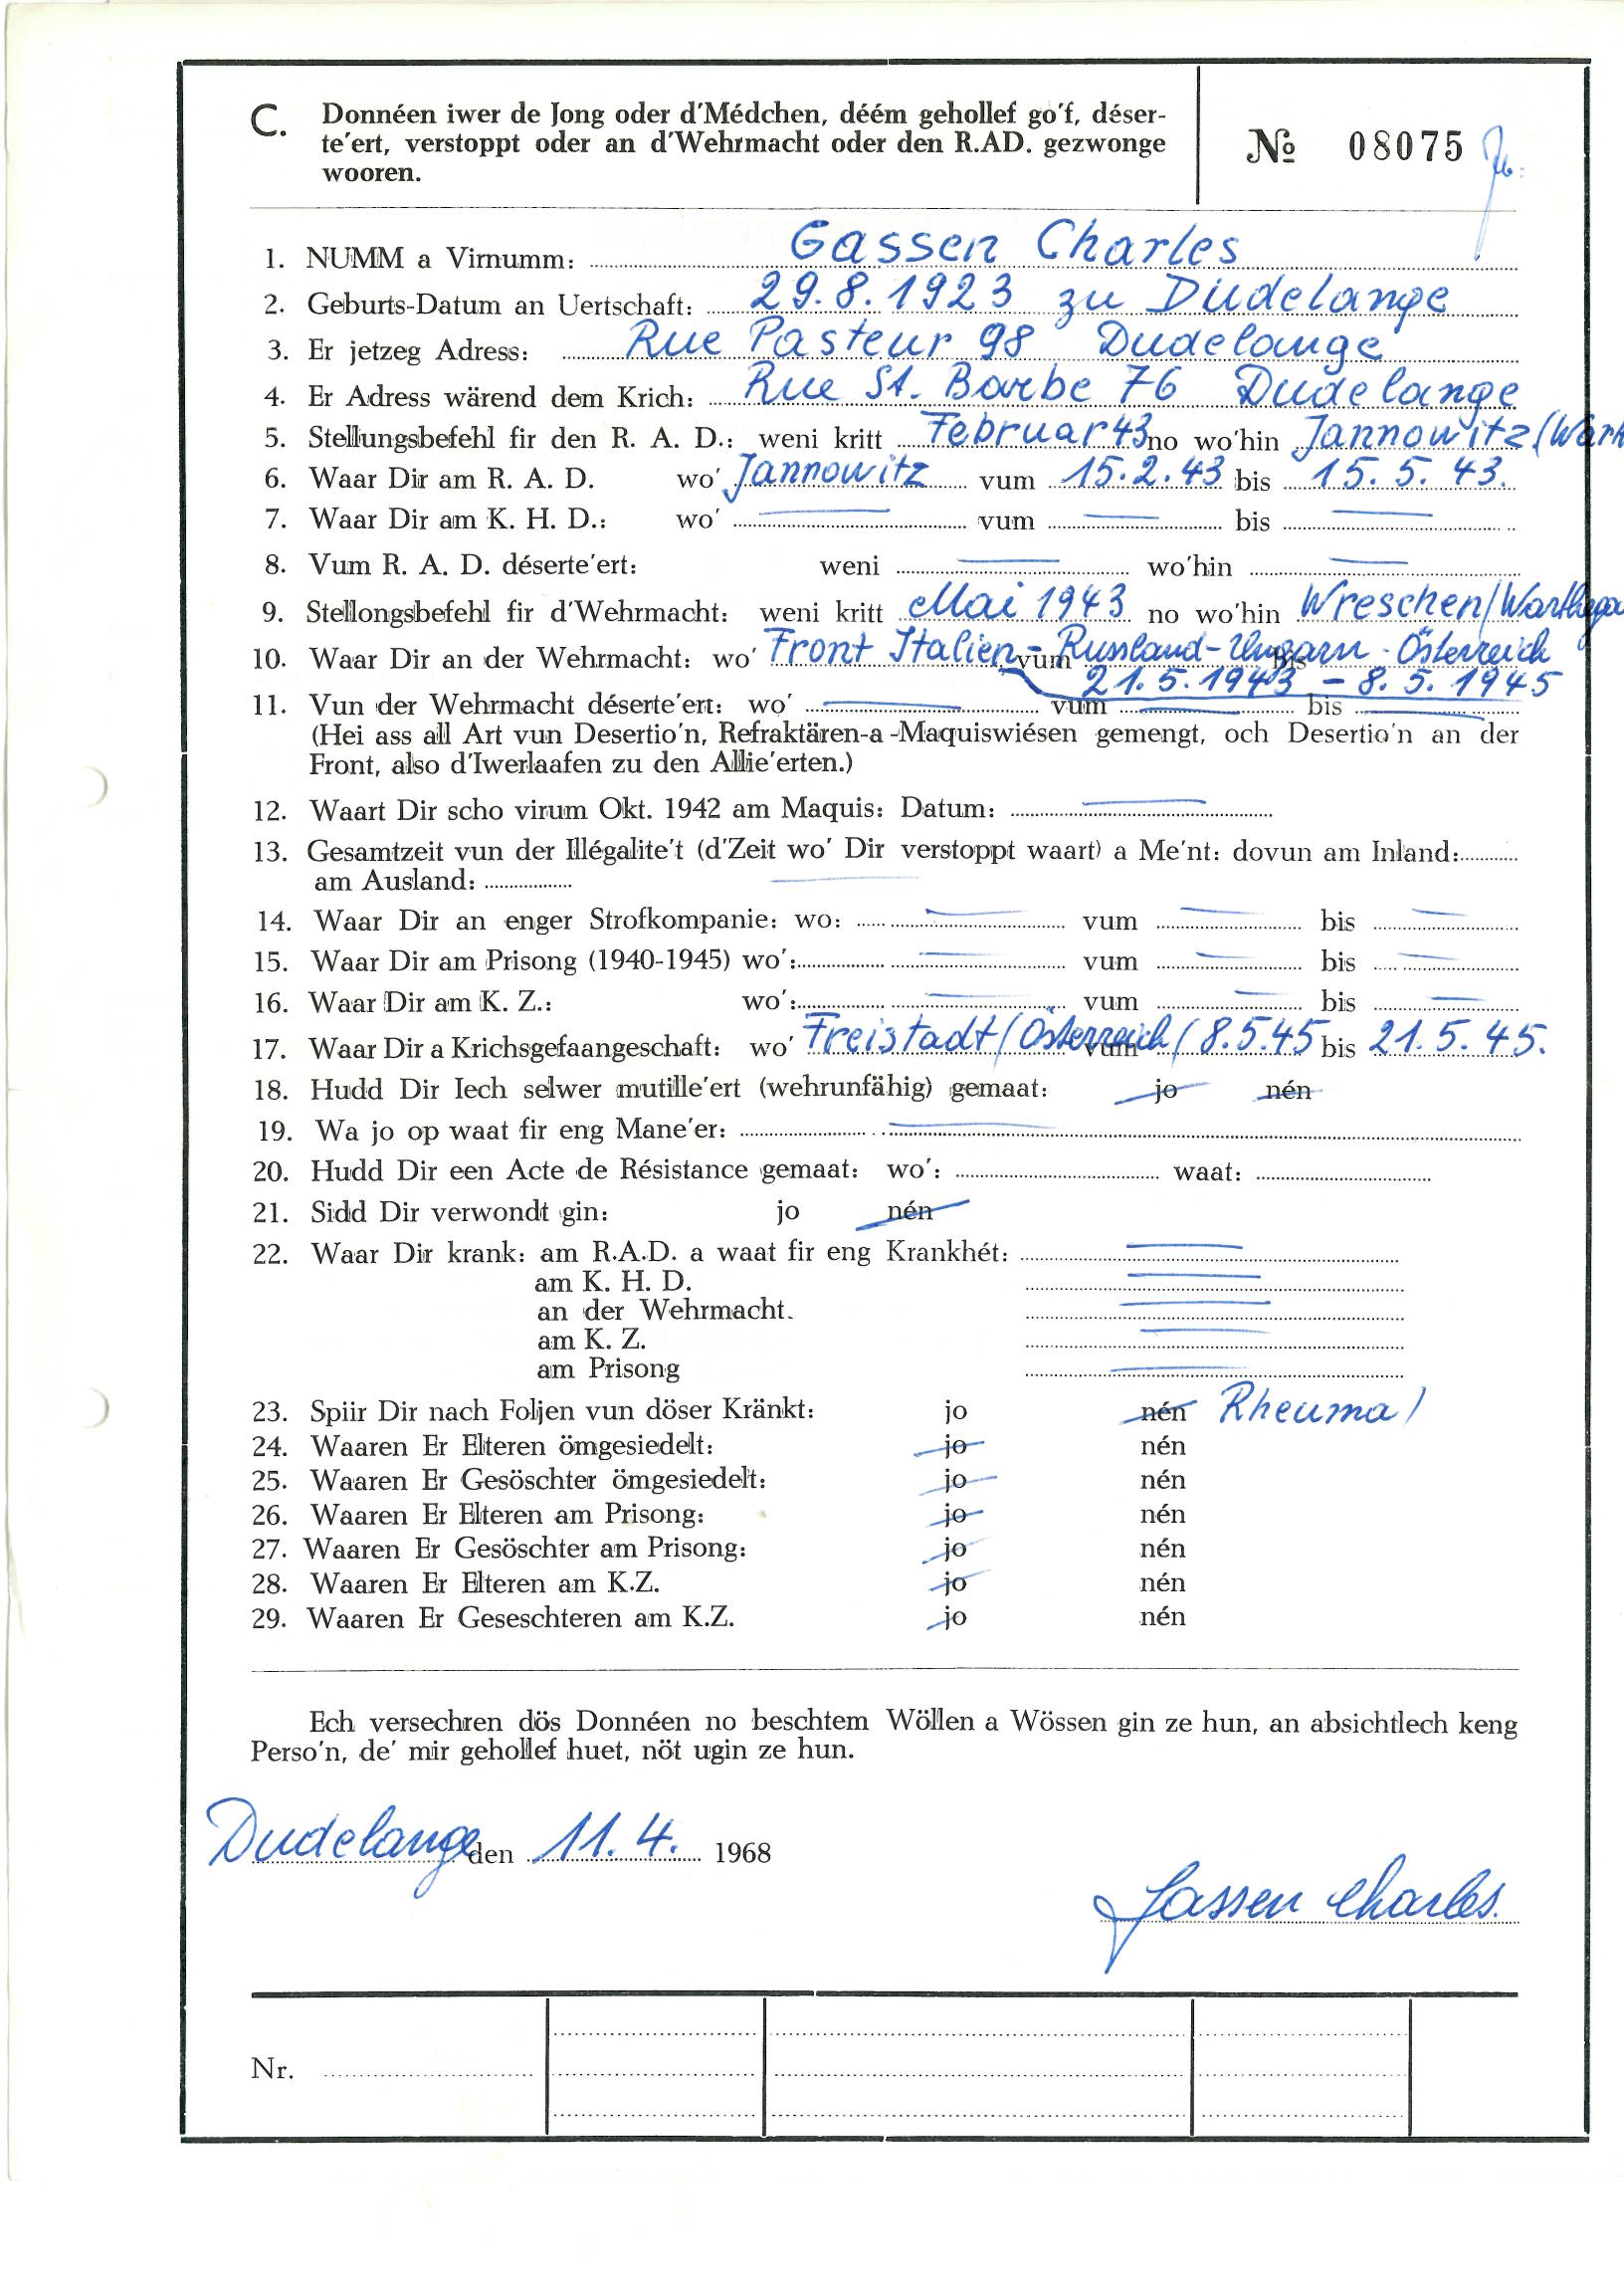 C. Donnéen iwer de Jong oder d'Médchen, déém gehollef go'f, déser-
te'ert, verstoppt oder an d'Wehrmacht oder den R.AD. gezwonge
wooren.
№ 08075
1. NUMM a Virnumm: Gassen Charles
2. Geburts-Datum an Uertschaft: 29.8.1923 zu Dudelange
3. Er jetzeg Adress: Rue Pasteur 98 Dudelange
4. Er Adress wärend dem Krich: Rue St. Barbe 76 Dudelange
5. Stellungsbefehl fir den R. A. D.: weni kritt Februar 43 no wo'hin Jannowitz (Wart
6. Waar Dir am R. A. D. wo' Jannowitz vum 15.2.43 bis 15.5.43.
7. Waar Dir am K. H. D.: wo' — vum — bis —
8. Vum R. A. D. déserte'ert: weni — wo'hin —
9. Stellongsbefehl fir d'Wehrmacht: weni kritt Mai 1943 no wo'hin Wreschen/Warthegau
10. Waar Dir an der Wehrmacht: wo' Front Italien - Russland - Ungarn - Österreich vum bis
21.5.1943 - 8.5.1945
11. Vun der Wehrmacht déserte'ert: wo' — vum — bis —
(Hei ass all Art vun Desertio'n, Refraktären-a-Maquiswiésen gemengt, och Desertio'n an der
Front, also d'Iwerlaafen zu den Allie'erten.)
12. Waart Dir scho virum Okt. 1942 am Maquis: Datum: —
13. Gesamtzeit vun der Illégalite't (d'Zeit wo' Dir verstoppt waart) a Me'nt: dovun am Inland:
am Ausland: —
14. Waar Dir an enger Strofkompanie: wo: — vum — bis —
15. Waar Dir am Prisong (1940-1945) wo': — vum — bis —
16. Waar Dir am K. Z.: wo': — vum — bis —
17. Waar Dir a Krichsgefaangeschaft: wo' Freistadt/Österreich/ vum 8.5.45 bis 21.5.45.
18. Hudd Dir Iech selwer mutille'ert (wehrunfähig) gemaat: jo nén
19. Wa jo op waat fir eng Mane'er: —
20. Hudd Dir een Acte de Résistance gemaat: wo': waat:
21. Sidd Dir verwondt gin: jo nén
22. Waar Dir krank: am R.A.D. a waat fir eng Krankhét: —
am K. H. D. —
an der Wehrmacht. —
am K. Z. —
am Prisong —
23. Spiir Dir nach Foljen vun döser Kränkt: jo nén Rheuma/
24. Waaren Er Elteren ömgesiedelt: jo nén
25. Waaren Er Gesöschter ömgesiedelt: jo nén
26. Waaren Er Elteren am Prisong: jo nén
27. Waaren Er Gesöschter am Prisong: jo nén
28. Waaren Er Elteren am K.Z. jo nén
29. Waaren Er Geseschteren am K.Z. jo nén
Ech versechren dös Donnéen no beschtem Wöllen a Wössen gin ze hun, an absichtlech keng
Perso'n, de' mir gehollef huet, nöt ugin ze hun.
Dudelange den 11.4. 1968
Gassen Charles.
Nr.